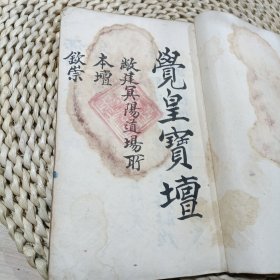 覺皇寶壇
啟建冥陽道場所
本壇
欽崇